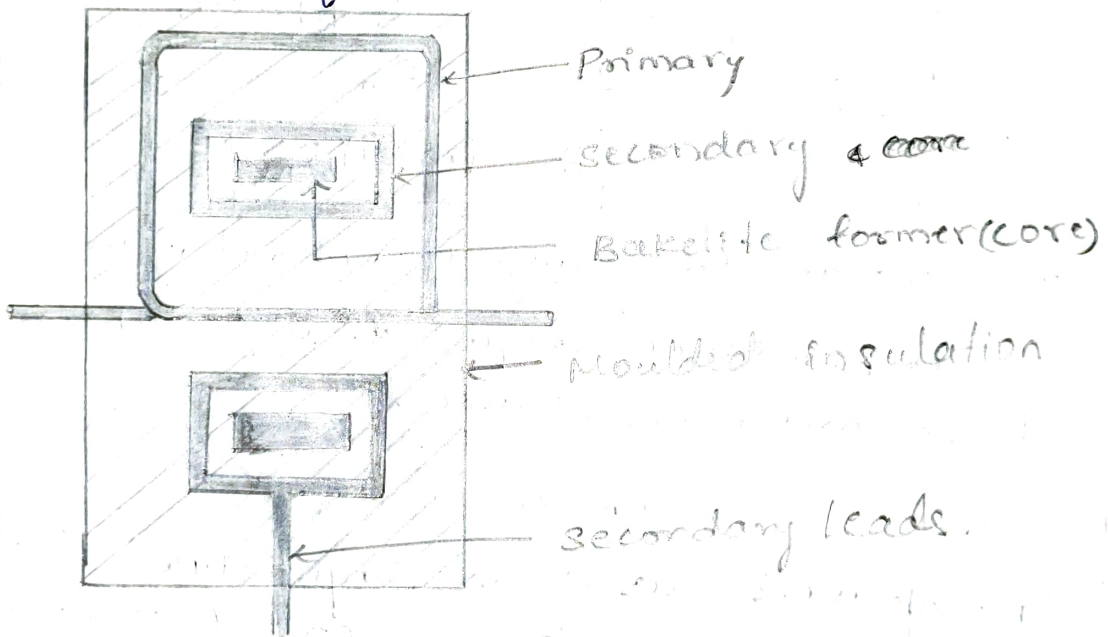 Primary
secondary &
Bakelite former(core)
Moulded insulation
secondary leads.